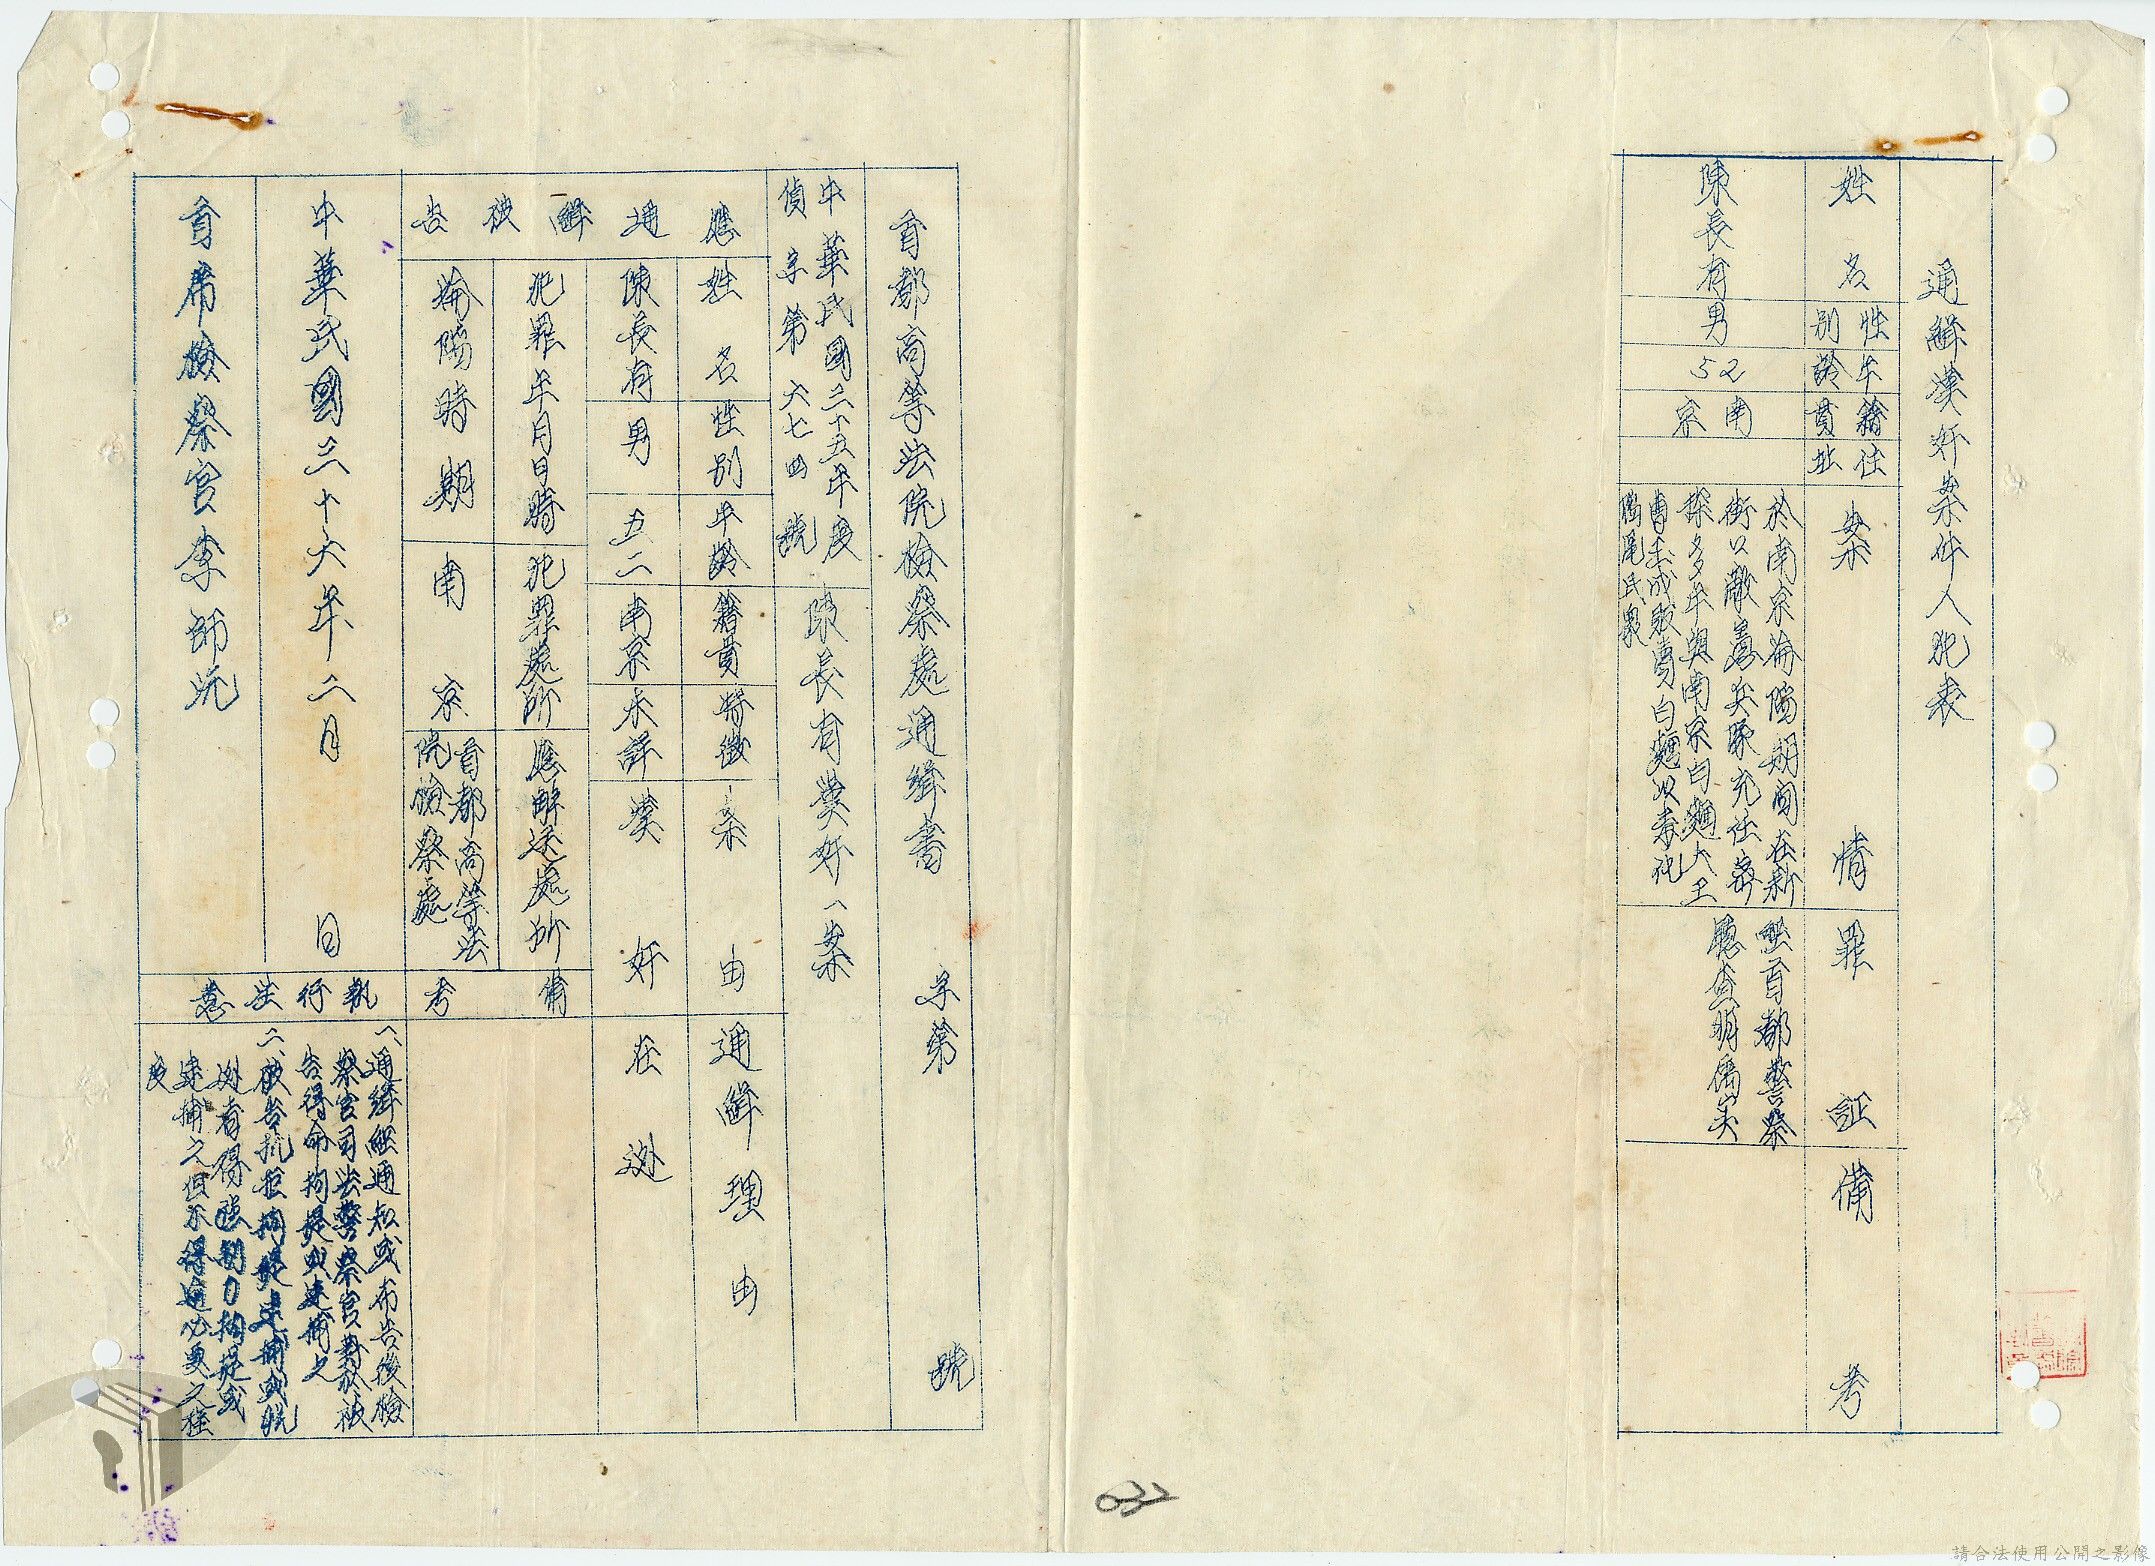 通緝漢奸案件人犯表
姓名
性別
年齡
籍貫
住址
案情
罪証
備考
陳長有
男
52
南京
於南京淪陷期間在新
街口敵憲兵隊充任密
探多年與南京白麵大王
曹玉成販賣白麵以毒化
淪陷民眾
經首都警察
廳查明屬實
首都高等法院檢察處通緝書 字第 號
中華民國三十五年度
偵字第六七四號
陳長有漢奸一案
應通緝被告
姓名
性別
年齡
籍貫
特徵
案由
通緝理由
陳長有
男
五二
南京
未詳
漢奸
在逃
犯罪年月日時
犯罪處所
應解送處所
備考
淪陷時期
南京
首都高等法
院檢察處
執行注意
一、通緝經通知或布告後檢
察官司法警察官對於被
告得命拘提或逮捕之
二、被告抗拒拘提逮捕或脫
逃者得強制力拘提或
逮捕之但不得逾必要之程
度
中華民國三十六年二月 日
首席檢察官李師沆
632
請合法使用公開之影像